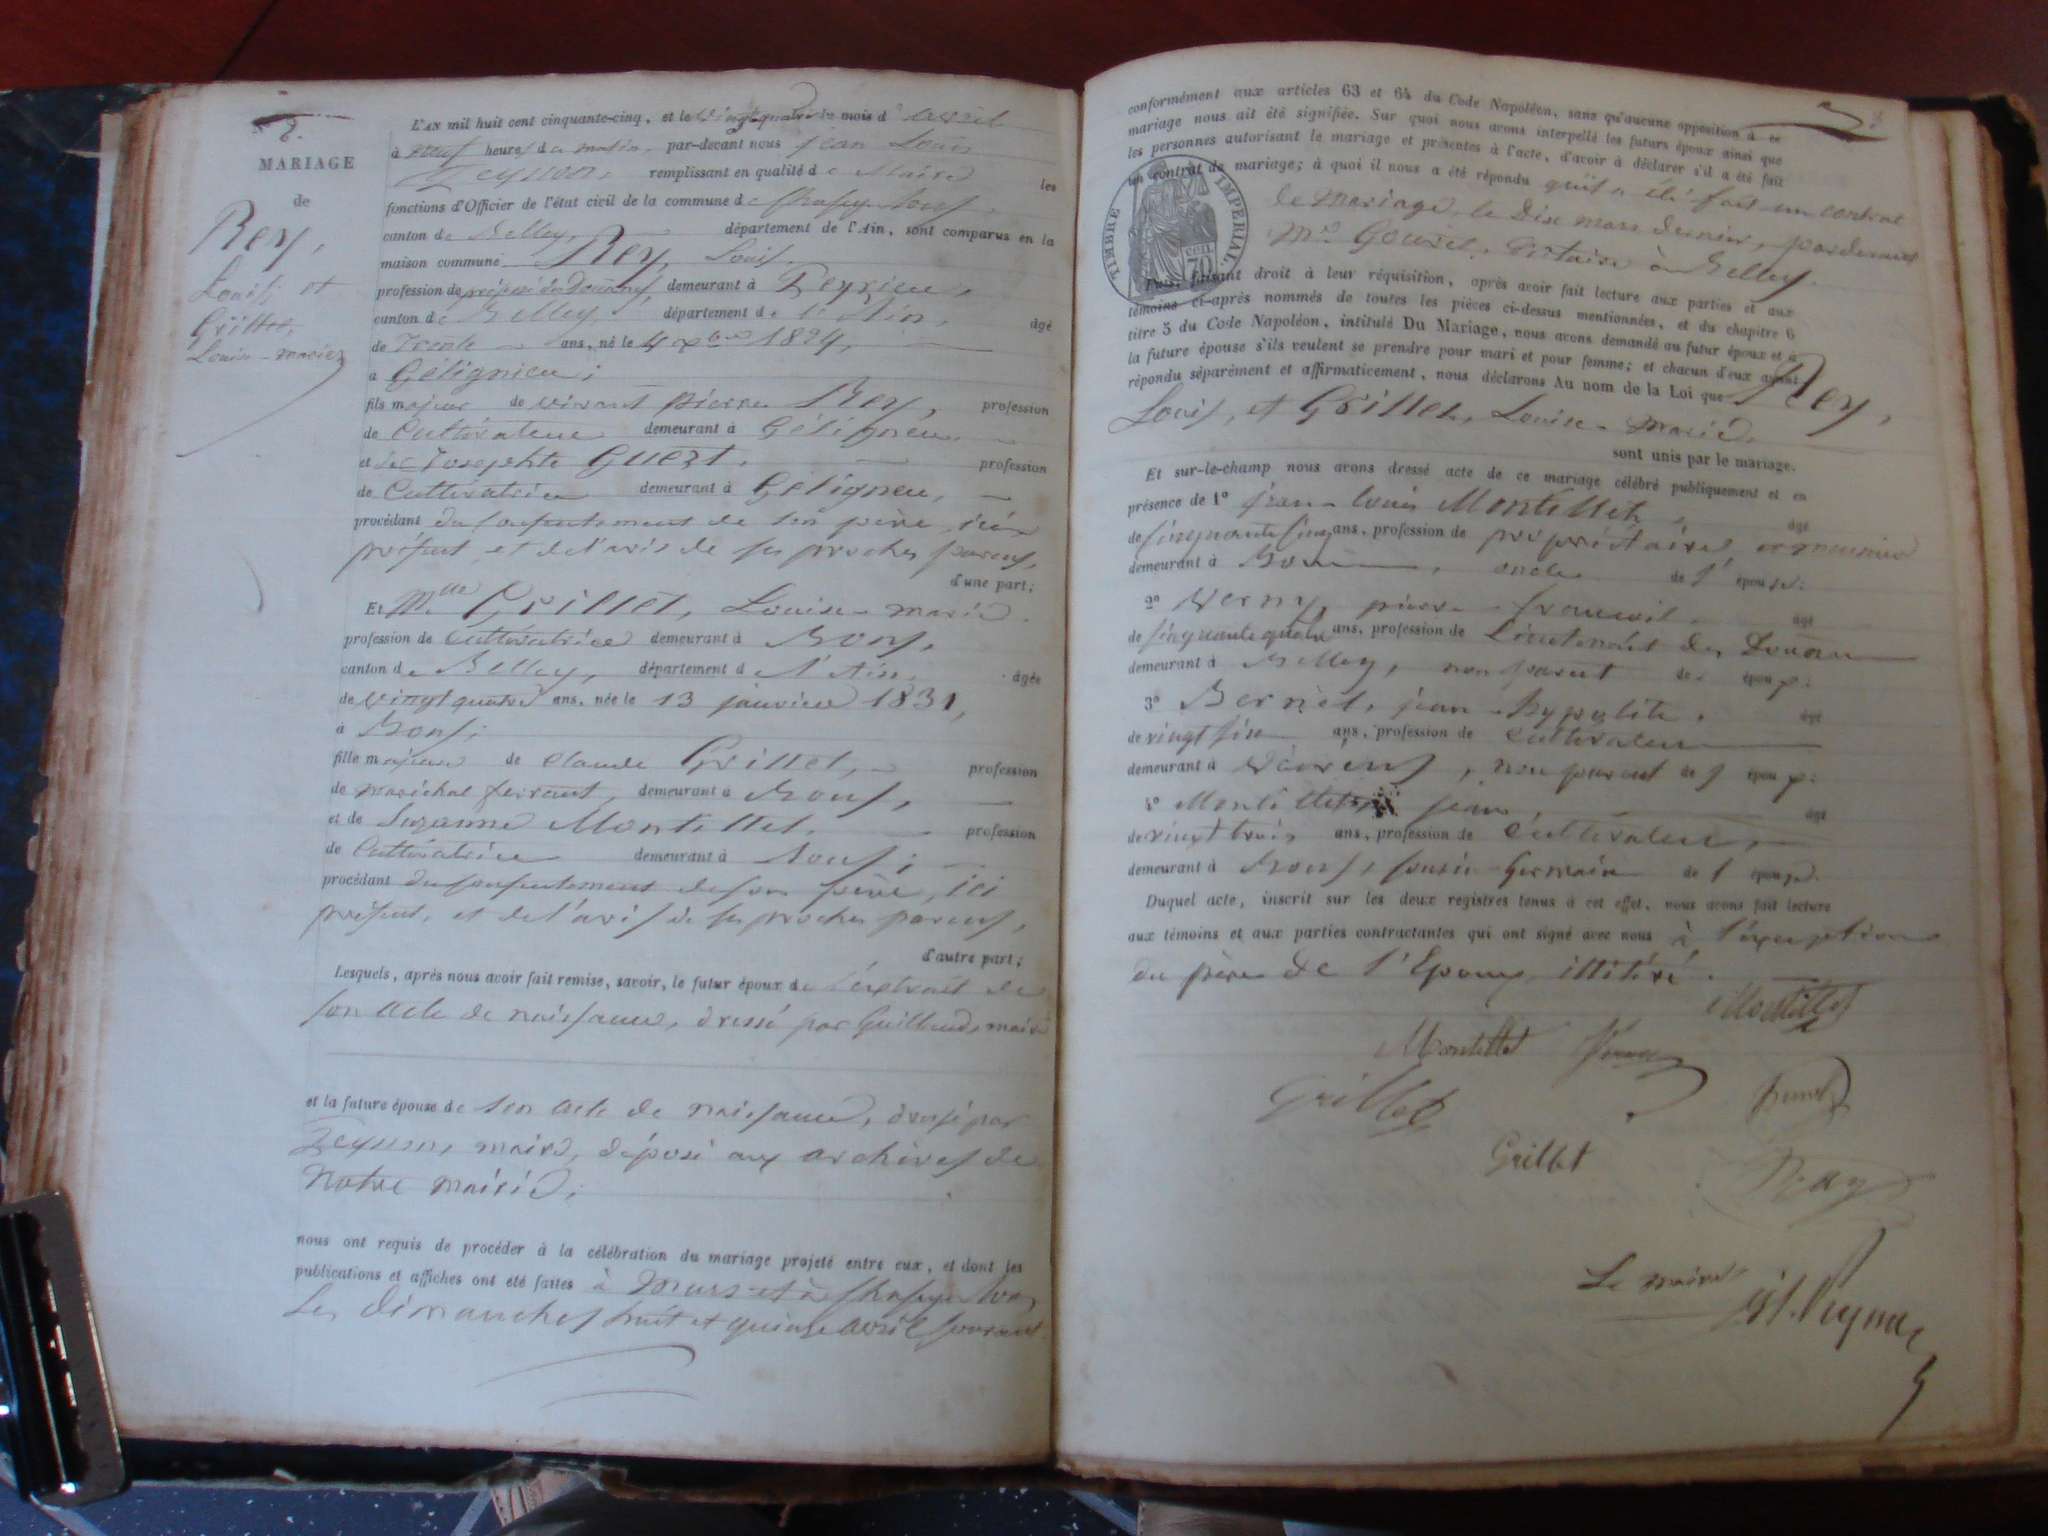 MARIAGE
de
Rey,
Louis et
Grillet,
Louise-marie
L'AN mil huit cent cinquante-cinq, et le vingtquatre du mois d'avril
à neuf heures du matin, par-devant nous jean Louis
remplissant en qualité de Maire les
fonctions d'Officier de l'état civil de la commune de
canton de Belley, département de l'Ain, sont comparus en la
maison commune Rey, Louis,
profession de préposé des Douanes, demeurant à Peyrieu,
canton de Belley, département de l'Ain, âgé
de Trente ans, né le 4 xbre 1824,
à Gélignieu;
fils majeur de vivant pierre Rey, profession
de Cultivateur demeurant à Gélignieu,
et de Josephte Guezt, profession
de Cultivatrice demeurant à Gélignieu,
procédant du consentement de son père, ici
présent, et de l'avis de ses proches parens,
d'une part;
Et Mlle Grillet, Louise-marie
profession de Cultivatrice demeurant à Bons,
canton de Belley, département de l'Ain, âgée
de vingtquatre ans, née le 13 janvier 1831,
à Bons;
fille majeure de Claude Grillet, profession
de maréchal ferrant, demeurant à Bons,
et de Suzanne Montillet, profession
de Cultivatrice demeurant à Bons;
procédant du consentement de son père, ici
présent, et de l'avis de ses proches parens,
d'autre part;
Lesquels, après nous avoir fait remise, savoir, le futur époux de l'extrait de
son acte de naissance, dressé par Guilland, maire
et la future épouse de son acte de naissance, dressé par
maire, déposé aux archives de
Notre mairie;
nous ont requis de procéder à la célébration du mariage projeté entre eux, et dont les
publications et affiches ont été faites à Murs et à
les dimanches huit et quinze avril courant
conformément aux articles 63 et 64 du Code Napoléon, sans qu'aucune opposition à ce
mariage nous ait été signifiée. Sur quoi nous avons interpellé les futurs époux ainsi que
les personnes autorisant le mariage et présentes à l'acte, d'avoir à déclarer s'il a été fait
un contrat de mariage; à quoi il nous a été répondu qu'il a été fait un contrat
de mariage, le Dix mars dernier, pardevant
Me Gouvet, Notaire à Belley.
TIMBRE IMPERIAL
70
Puis, faisant droit à leur réquisition, après avoir fait lecture aux parties et aux
témoins ci-après nommés de toutes les pièces ci-dessus mentionnées, et du chapitre 6
titre 5 du Code Napoléon, intitulé Du Mariage, nous avons demandé au futur époux et à
la future épouse s'ils veulent se prendre pour mari et pour femme; et chacun d'eux ayant
répondu séparément et affirmativement, nous déclarons Au nom de la Loi que Rey,
Louis, et Grillet, Louise-marie,
sont unis par le mariage.
Et sur-le-champ nous avons dressé acte de ce mariage célébré publiquement et en
présence de 1° jean-louis Montillet, âgé
de cinquante cinq ans, profession de propriétaire et meunier
demeurant à Bons, oncle de l'épouse;
2° Verny, pierre françois, âgé
de cinquante quatre ans, profession de Lieutenant des Douanes
demeurant à Belley, non parent des époux;
3° Bernet, jean-hypolite, âgé
de vingt six ans, profession de Cultivateur
demeurant à non parent des époux;
4° Montillet jean, âgé
de vingt trois ans, profession de Cultivateur,
demeurant à Bons, cousin-Germain de l'épouse.
Duquel acte, inscrit sur les deux registres tenus à cet effet, nous avons fait lecture
aux témoins et aux parties contractantes qui ont signé avec nous à l'exeption
du père de l'Epoux illitéré.
Montillet
Montillet
Grillet
Grillet
Rey
Le maire